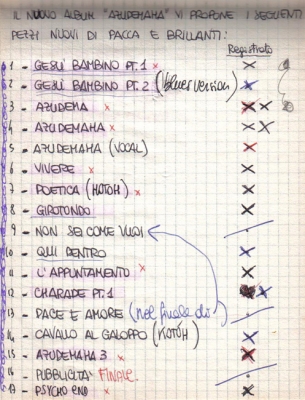 IL NUOVO ALBUM "AZUDEMAHA" VI PROPONE I SEGUENTI
PEZZI NUOVI DI PACCA E BRILLANTI:
Registrato
1 - GESÙ BAMBINO PT. 1 x X
2 - GESÙ BAMBINO PT. 2 (blues version) X
3 - AZUDEMA x X X
4 - AZUDEMAHA x X X
5 - AZUDEMAHA (VOCAL) X
6 - VIVERE x X
7 - POETICA (KOTOH) x X
8 - GIROTONDO X
9 - NON SEI COME VUOI .
10 - QUI DENTRO X
11 - L'APPUNTAMENTO x X
12 - CHARADE PT. 1 x X
13 - PACE E AMORE (nel finale di) .
14 - CAVALLO AL GALOPPO (KOTOH) X
15 - AZUDEMAHA 3 x X
16 - PUBBLICITÀ FINALE. .
17 - PSYCHO END x X